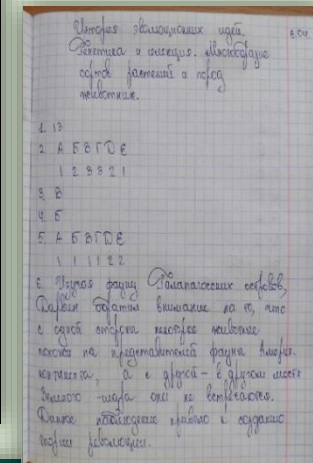 8.04.
История эволюционных идей.
Генетика и селекция. Многообразие
сортов растений и пород
животных.
1. 13
2. А Б В Г Д Е
1 2 3 3 2 1
3. В
4. Б
5. А Б В Г Д Е
1 1 1 1 2 2
6. Изучая фауну Галапагосских островов,
Дарвин обратил внимание на то, что
с одной стороны некоторое животное
похоже на представителей фауны Америк.
континента, а с другой - в другом месте
Земного шара она не встречаются.
Данное наблюдение привело к созданию
теории революции.